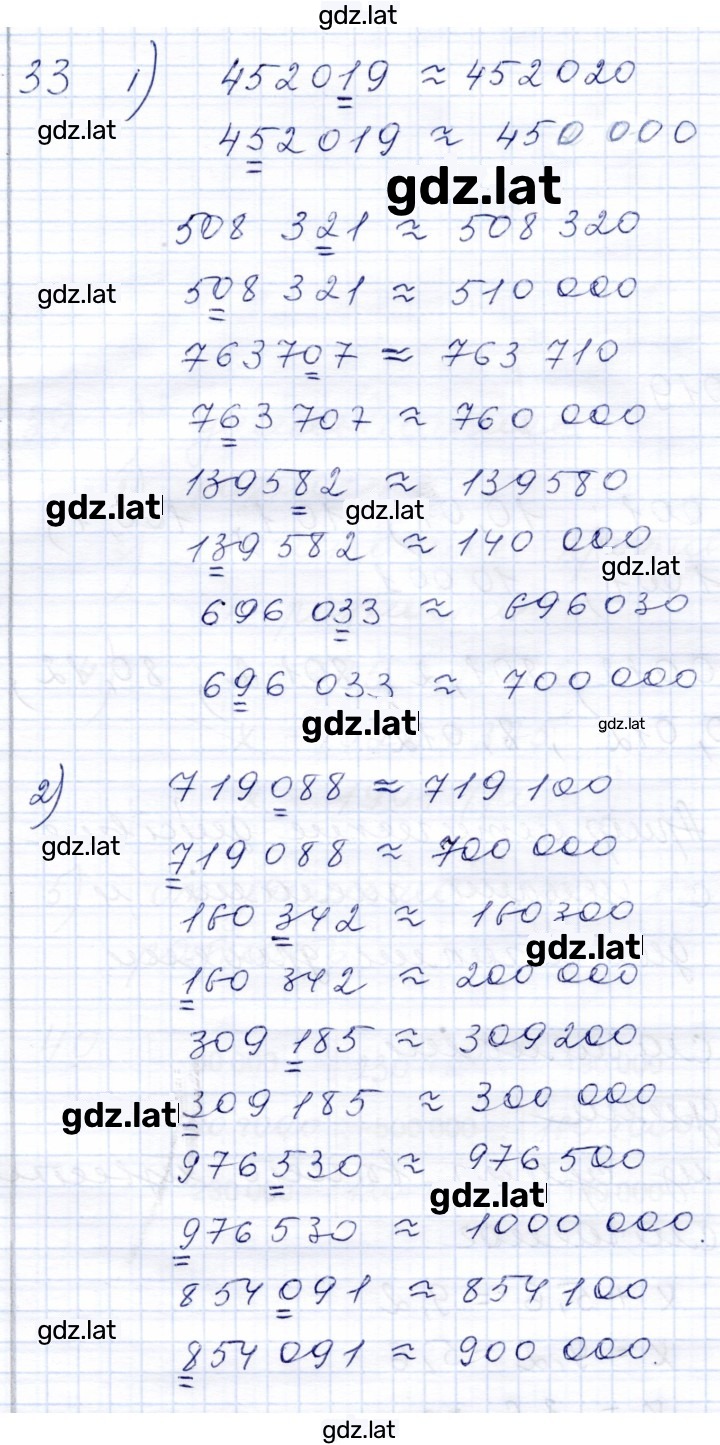 gdz.lat
33 1) 452019 ≈ 452020
gdz.lat
452019 ≈ 450 000
gdz.lat
508 321 ≈ 508 320
gdz.lat
508 321 ≈ 510 000
763707 ≈ 763 710
763 707 ≈ 760 000
139582 ≈ 139580
gdz.lat gdz.lat
139 582 ≈ 140 000
gdz.lat
696 033 ≈ 696030
696 033 ≈ 700 000
gdz.lat gdz.lat
2) 719088 ≈ 719 100
gdz.lat
719 088 ≈ 700 000
160 342 ≈ 160300
gdz.lat
160 342 ≈ 200 000
309 185 ≈ 309200
gdz.lat
309 185 ≈ 300 000
976530 ≈ 976 500
gdz.lat
976530 ≈ 1000 000.
854 091 ≈ 854 100
gdz.lat
854 091 ≈ 900 000.
gdz.lat